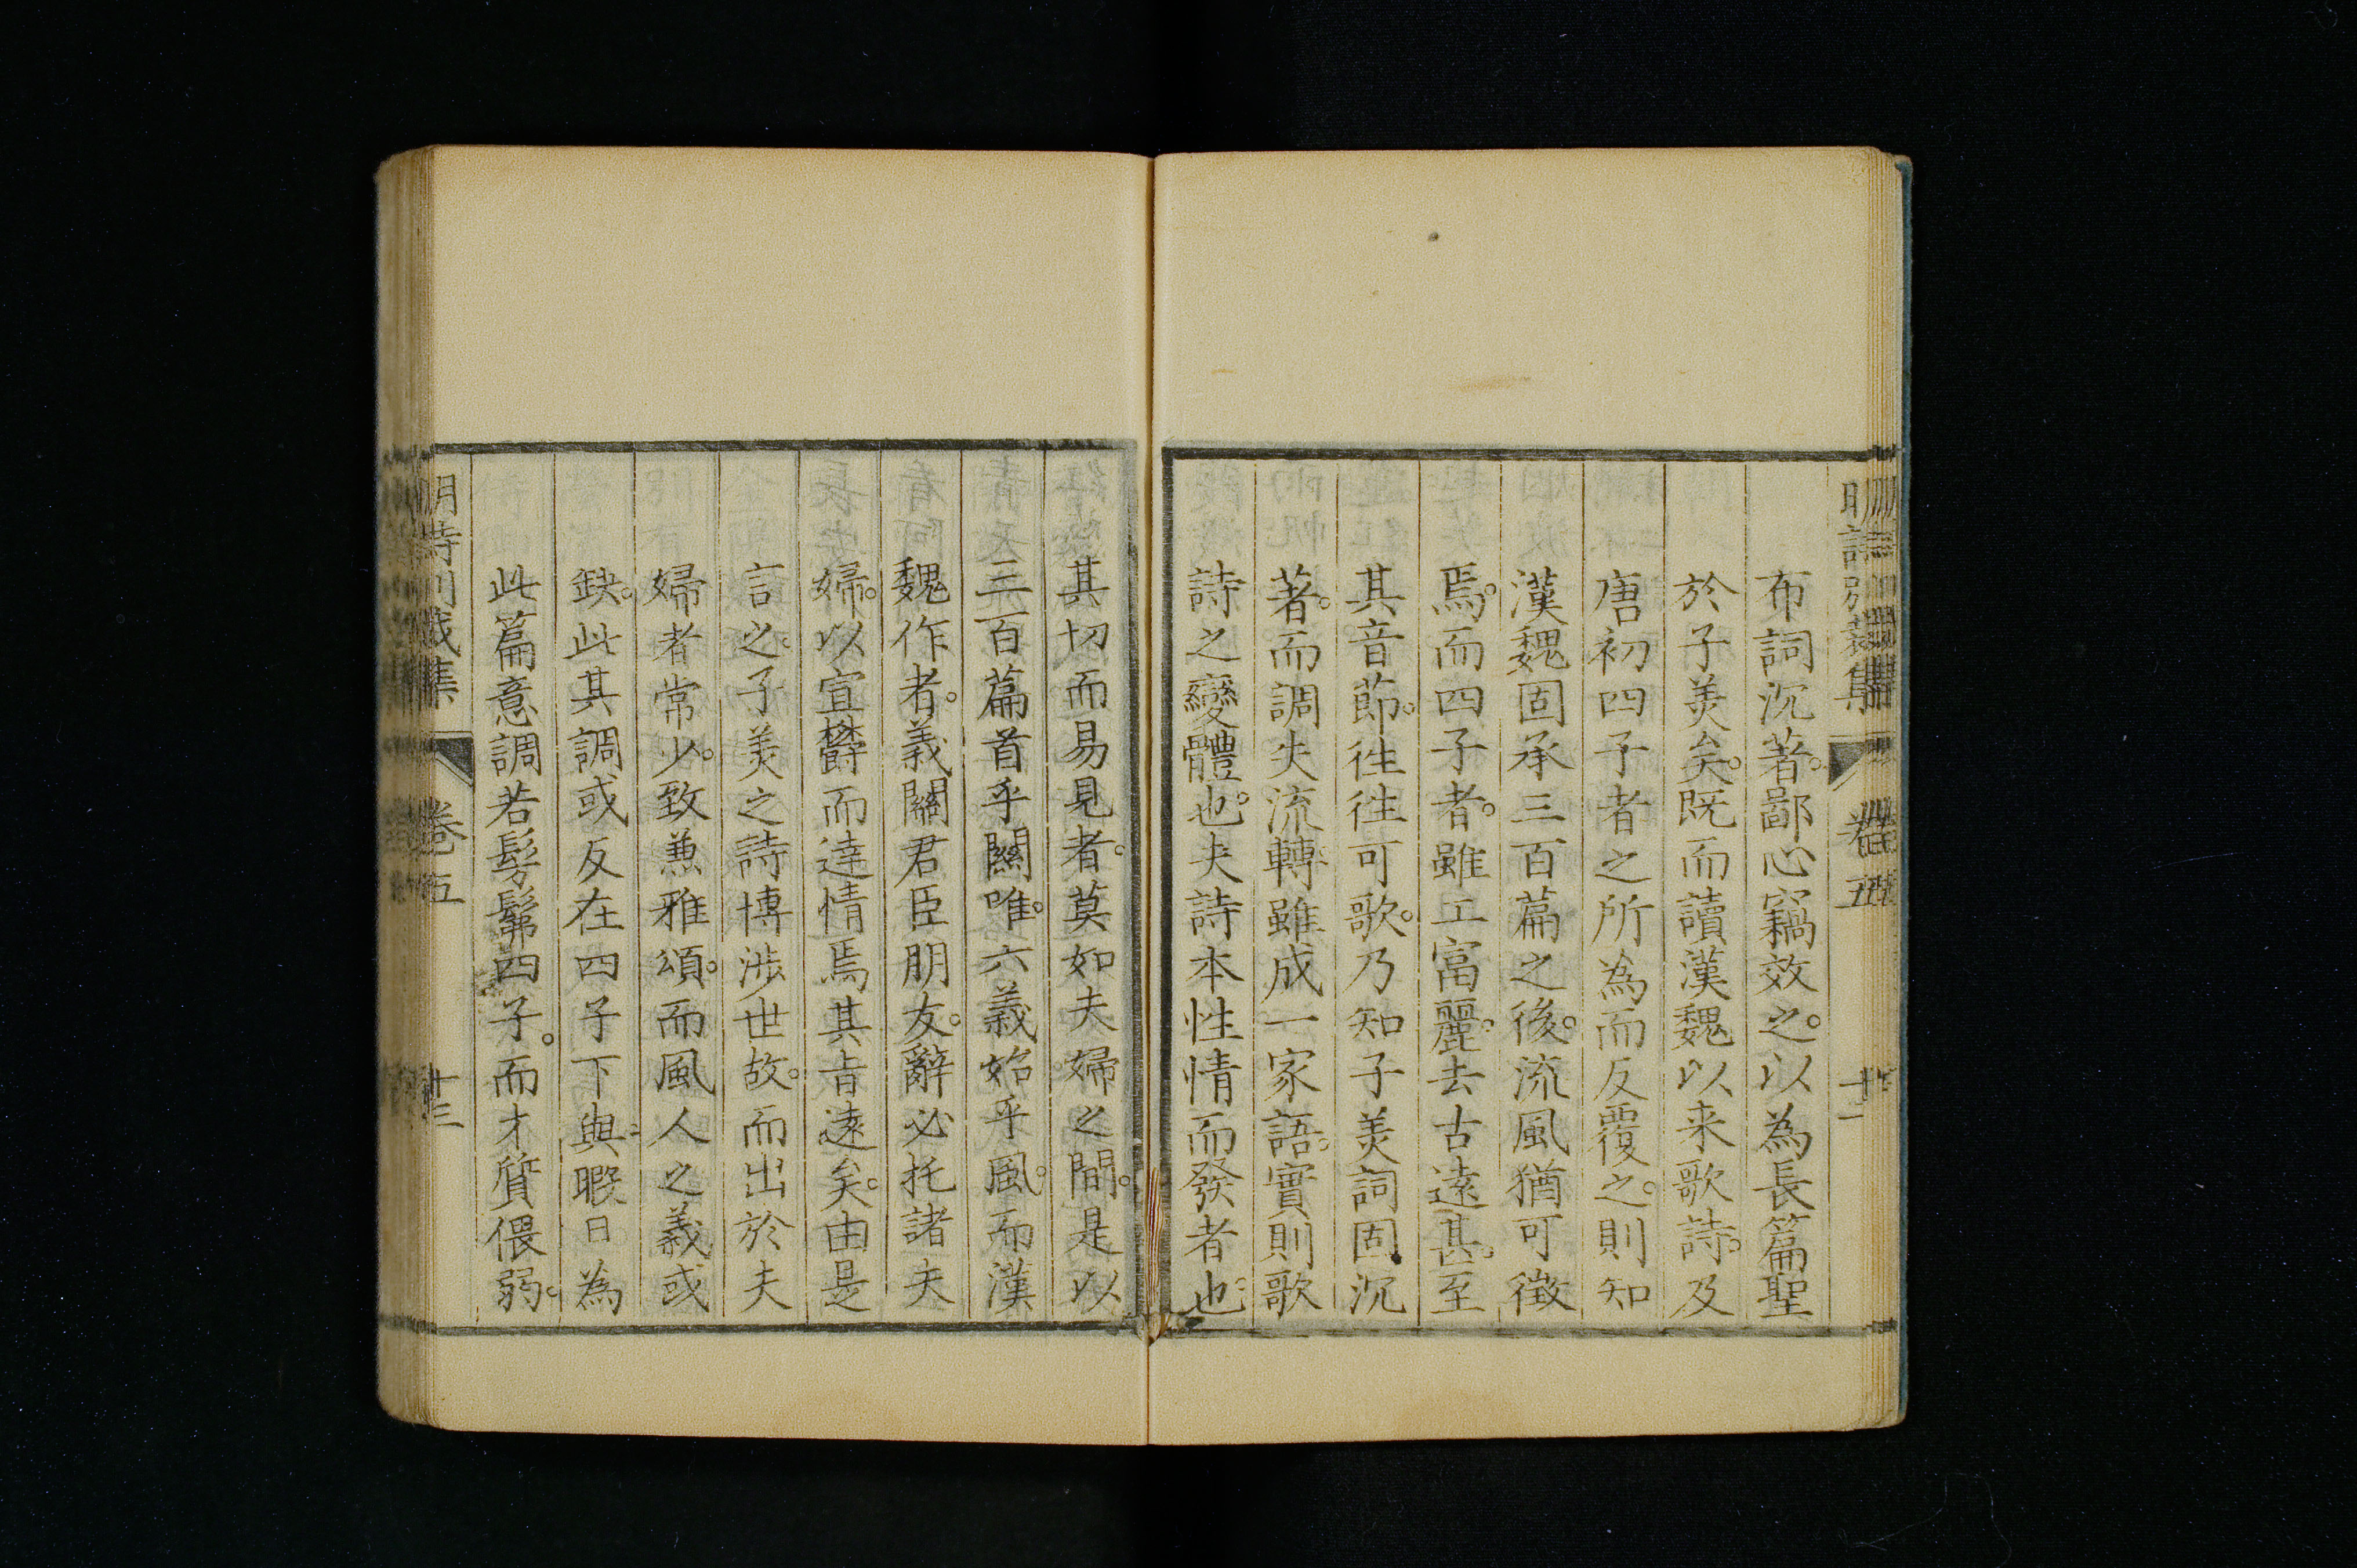 明詩別裁集 卷五 十二
布詞沉著。鄙心竊效之。以為長篇聖
於子美矣。既而讀漢魏以来歌詩。及
唐初四子者之所為而反覆之。則知
漢魏固承三百篇之後。流風猶可徵
焉。而四子者。雖工富麗。去古遠甚。至
其音節。徃徃可歌。乃知子美詞固沉
著。而調失流轉。雖成一家語。實則歌
詩之變體也。夫詩本性情而發者也。
其切而易見者。莫如夫婦之間。是以
三百篇首乎關唯。六義始乎風。而漢
魏作者。義關君臣朋友。辭必托諸夫
婦。以宣欝而達情焉其旨遠矣。由是
言之。子美之詩博涉世故。而出於夫
婦者常少。致兼雅頌。而風人之義或
缺。此其調或反在四子下與。暇日為
此篇意調若髣髴四子。而才質偎弱。
明詩別裁集 卷五 十三